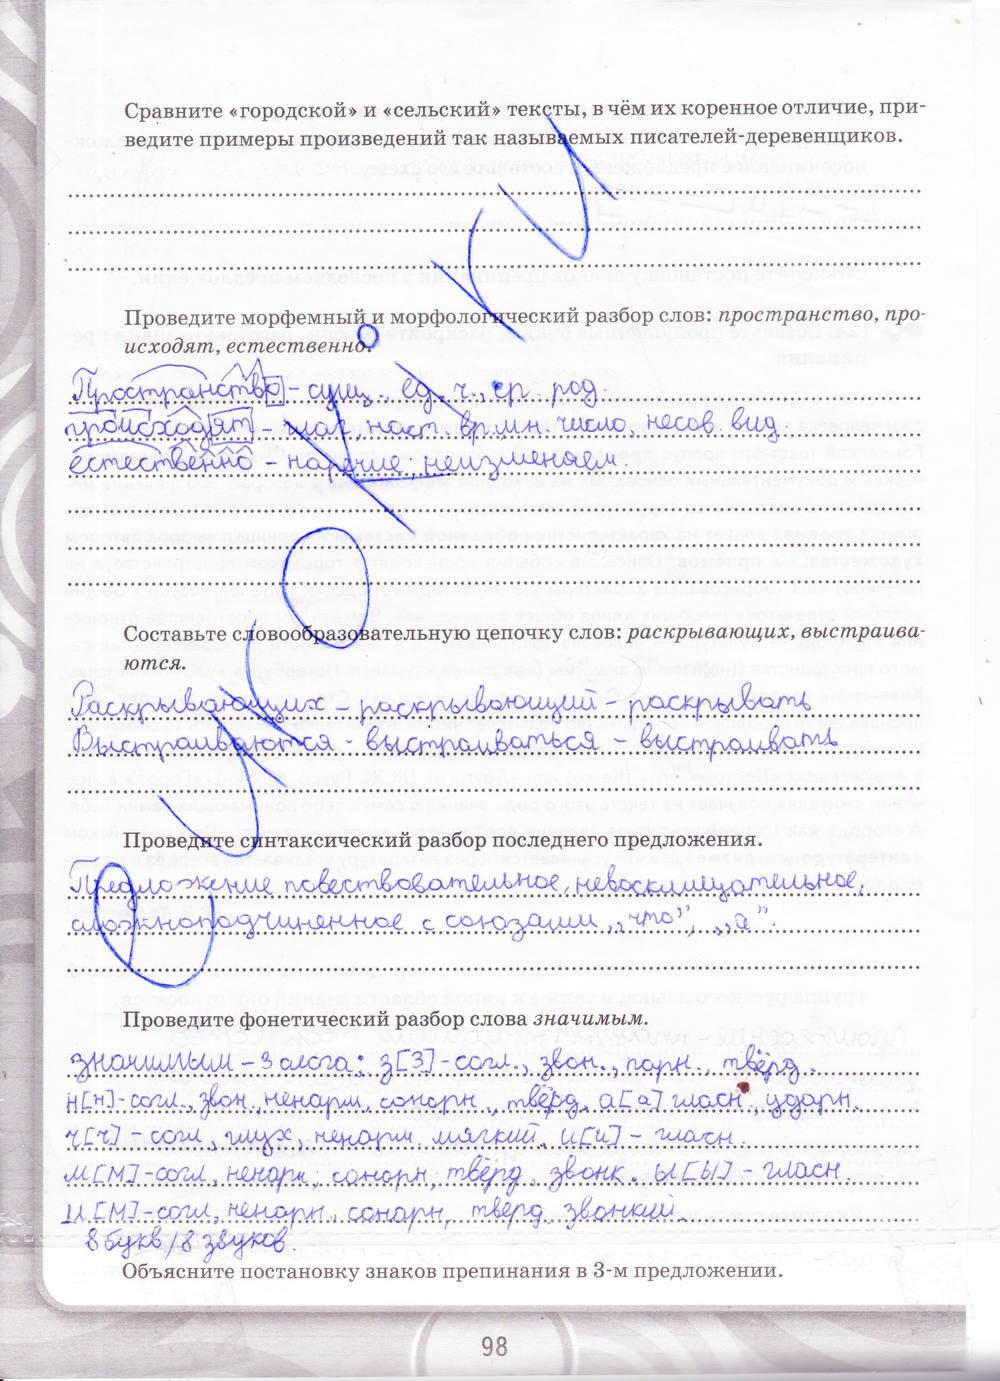 Сравните «городской» и «сельский» тексты, в чём их коренное отличие, при-
ведите примеры произведений так называемых писателей-деревенщиков.
Проведите морфемный и морфологический разбор слов: пространство, про-
исходят, естественно.
Пространство – сущ., ед. ч., ср. род.
происходят – глаг, наст. вр. мн. число, несов. вид
естественно – наречие, неизменяем.
Составьте словообразовательную цепочку слов: раскрывающих, выстраива-
ются.
Раскрывающих – раскрывающий – раскрывать
Выстраиваются - выстраиваться – выстраивать
Проведите синтаксический разбор последнего предложения.
Предложение повествовательное, невосклицательное,
сложноподчиненное с союзами „что”, „а”.
Проведите фонетический разбор слова значимым.
значимым – 3 слога; з[з] - согл., звон., парн., твёрд.
н[н]-согл., звон, непарн, сонорн., твёрд, а[а] гласн., ударн.
ч[ч] - согл, глух, непарн. мягкий. и[и] – гласн.
м[м]-согл, непарн, сонорн, твёрд, звонк. ы[ы] - гласн.
м[м]-согл, непарн, сонорн, твёрд, звонкий.
8 букв/8 звуков.
Объясните постановку знаков препинания в 3-м предложении.
98